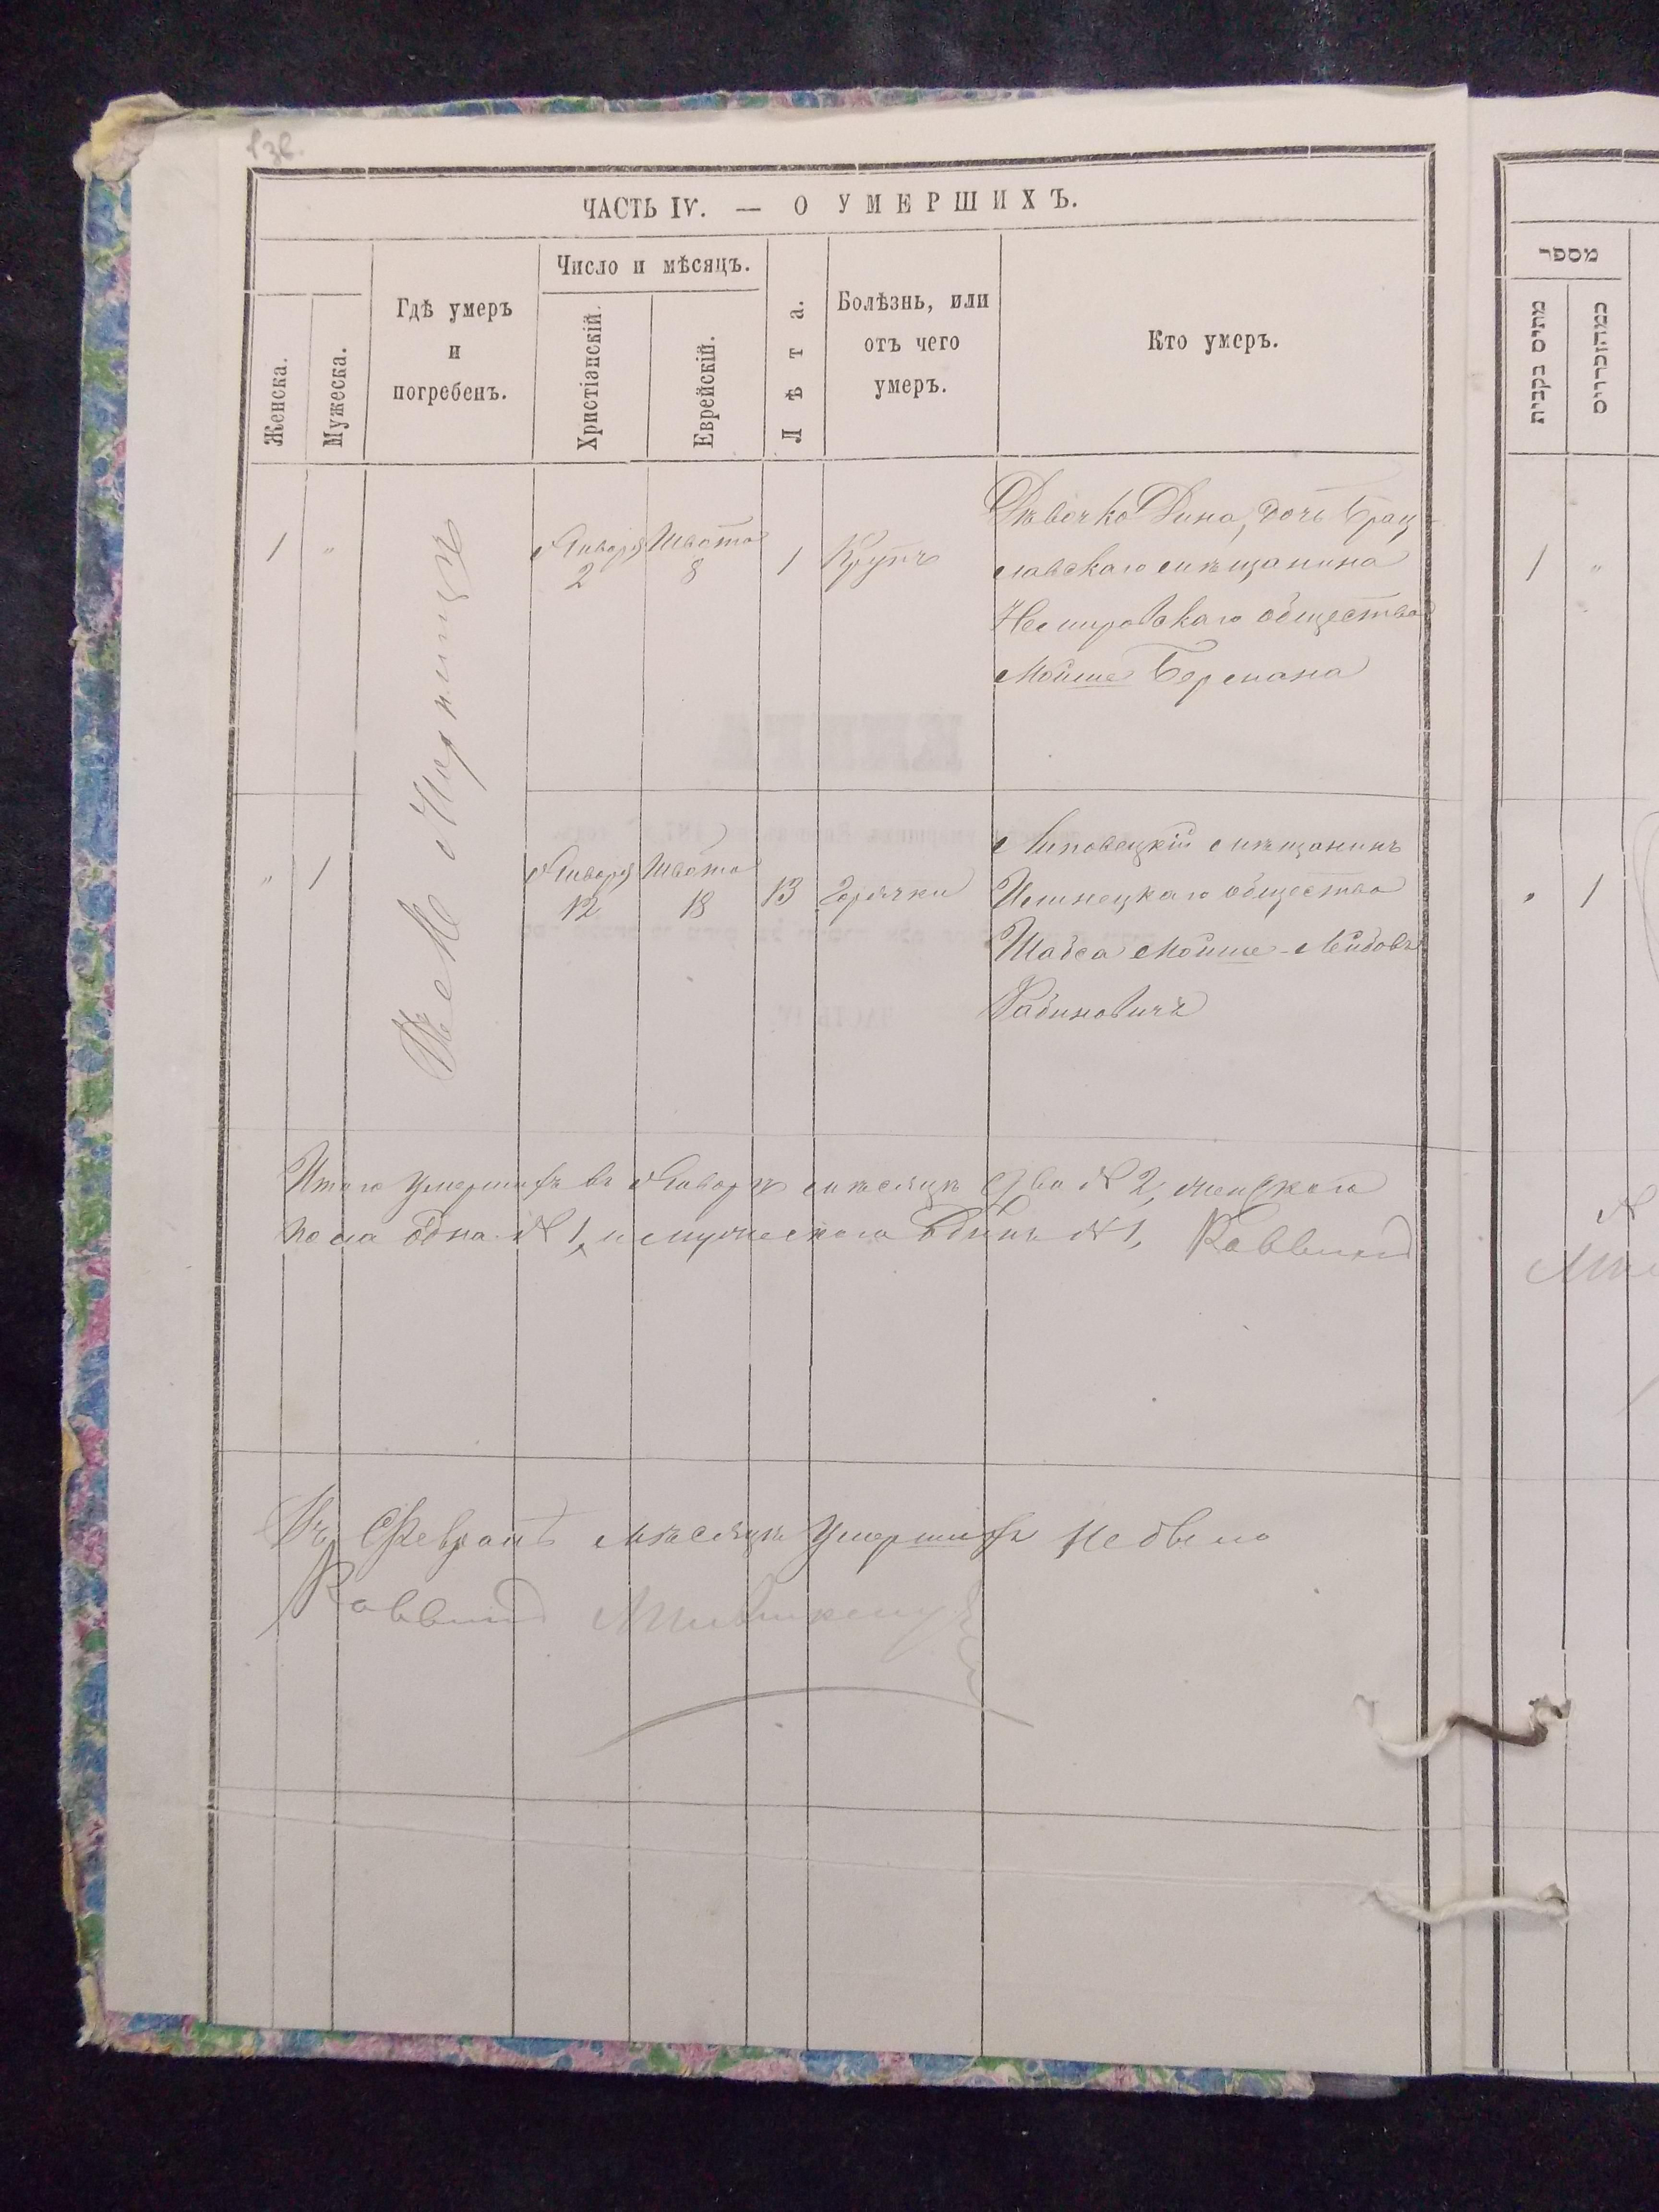 ЧАСТЬ IV. — О УМЕРШИХЪ.
Женска.
Мужеска.
Гдѣ умеръ
и
погребенъ.
Число и мѣсяцъ.
Христіанскій.
Еврейскій.
Лѣта.
Болѣзнь, или
отъ чего
умеръ.
Кто умеръ.
מספר
מתים נקבות
1 "
Января
2
Швата
8
1
Крупъ
Дѣвочка Дина, дочь Брац-
лавскаго мѣщанина
Немировскаго общества
Мойше Бермана
1 "
" 1
Января
12
Швата
18
13
Горячки
Липовецкій мѣщанинъ
Илинецкаго общества
Шабса Мойше-Лейбовъ
Рабиновичъ
" 1
Итого умершихъ въ Январѣ мѣсяцѣ два N 2, женскаго
пола одна N 1, и мужескаго одинъ N 1, Раввинъ
Въ Февралѣ мѣсяцѣ умершихъ не было
Раввинъ